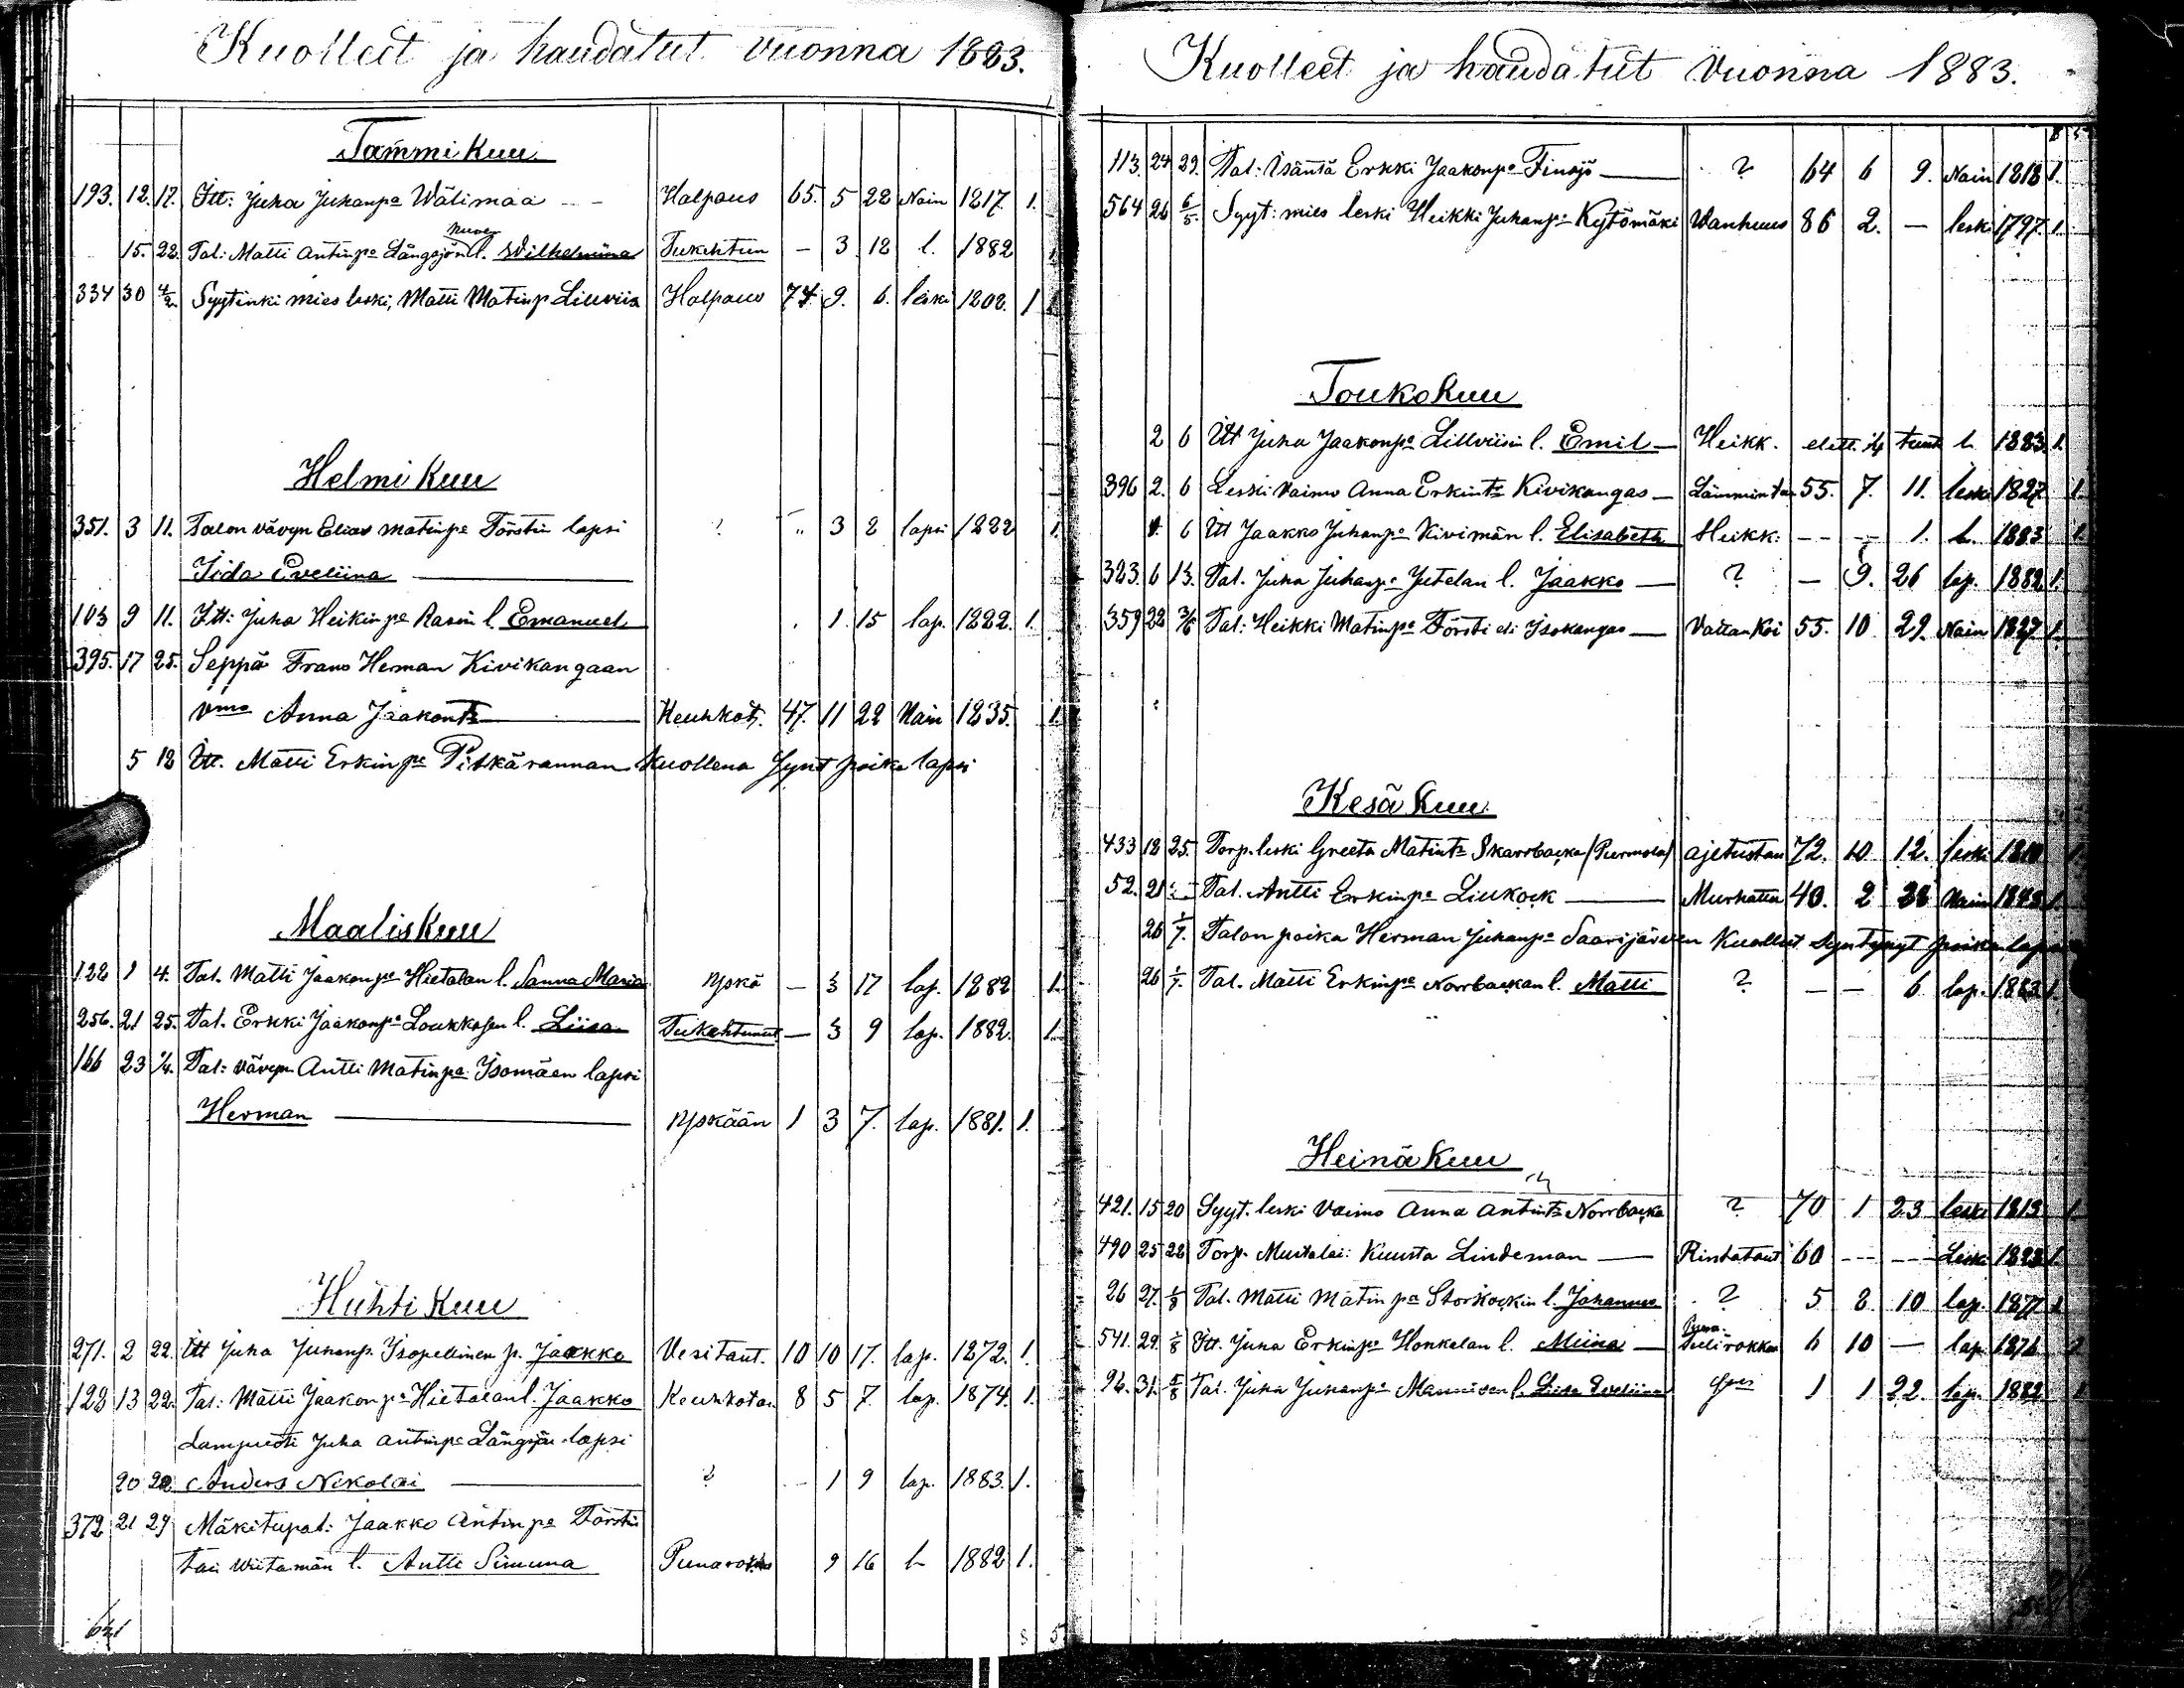 Kuolleet ja haudatut vuonna 1883.
Tammi Kuu
193. 12. 17. Itt: Juha Juhanpa Wälimaa - - Halpaus 65. 5 22 Nain 1817. 1.
15. 22. Tal: Matti Antinpa Långsjön l. Wilhelmiina Tukehtun - 3 12 l. 1882
334 30 4/2 Syytinki mies leski, Matti Matinp Lillviis Halpaus 74 9. 6. leski 1808. 1
Helmi Kuu
351. 3 11. Talon vävyn Elias Matinpa Förstin lapsi ? „ 3 2 lapsi 1882 1.
Iida Eveliina
103 9 11. Itt: Juha Heikinpa Rasin l Emanuel . 1. 15 lap. 1882. 1.
395. 17 25. Seppä Frans Herman Kivikangaan
Vmo Anna Jaakont: Keuhkot. 47. 11 22 Nain 1835. 1.
5 12 Itt. Matti Erkinpa Pitkärannan Kuollena Synt poika lapsi
Maalis Kuu
122 1 4. Tal. Matti Jaakonpa Hietalan l. Sanna Maria Yskä - 3 17 lap. 1882 1.
256. 21 25. Tal. Erkki Jaakonpa Loukkosen l. Liisa Tukehtunut - 3 9 lap. 1882. 1.
166 23 1/4. Tal: vävyn Antti Matinpa Isomäen lapsi
Herman Yskään 1 3 7. lap. 1881. 1.
Huhti Kuu
271. 2 22. Itt Juha Juhanp. Isopellinen p. Jaakko Vesitaut. 10 10 17. lap. 1872. 1.
122 13 22. Tal: Matti Jaakonpa Hietalan l. Jaakko Keuhkotau 8 5 7. lap. 1874. 1.
Lampuoti Juha Antinpa Långsjön lapsi
20 22 Anders Nikolai ? - 1 9 lap. 1883. 1.
372 21 29 Mäkitupal: Jaakko Antinpa Förstin
tai Wiitamän l. Antti Simuna Punarokko 9 16 l. 1882 1.
641
8 5
Kuolleet ja haudatut Vuonna 1883.
8 5
113. 24 29. Tal: Isäntä Erkki Jaakonpa Finsjö ? 64 6 9. Nain 1818 1.
564 26 6/5. Syyt: mies leski Heikki Juhanpa Kytömäki Wanhuus 86 2. - leski 1797. 1.
Touko Kuu
2 6 Itt Juha Jaakonpa Lillviisin l. Emil Heikk. elett. 1/4 tunt l. 1883. 1.
396 2. 6 Leski Vaimo Anna Erkint: Kivikangas Lämmin tau 55. 7. 11. leski 1827 1.
4. 6 Itt Jaakko Juhanpa Kivimän l. Elisabeth Heikk. - - - - 1. l. 1883 1.
323. 6 13. Tal. Juha Juhanpa Jutelan l. Jaakko ? - 9. 26 lap. 1882 1.
359 22 3/6 Tal: Heikki Matinpa Försti eli Isokangas Vattan Koi 55. 10 29. Nain 1827 1.
Kesä Kuu
433 18 25. Torp. leski Greeta Matint: Skarrbacka (Purmola) ajetustau 72. 10 12. leski 1810 1.
52. 21 Tal. Antti Erkinpa Liukock Murhattu 40. 2 28 Nain 1843. 1.
26 1/7. Talon poika Herman Juhanpa Saarijärven Kuollut Syntynyt poika lapsi
26 1/7. Tal. Matti Erkinpa Norrbackan l. Matti ? - - 6 lap. 1883 1.
Heinä Kuu
421. 15 20 Syyt. leski Vaimo Anna Antint: Norrbacka ? 70 1 23 leski 1813 1.
490 25 28 Torp. Mustalai: Kuusta Lindeman Rintataut 60 - - - - Leski 1823 1.
26 27. 1/8 Tal. Matti Matinpa Storkockin l. Johannes ? 5 8. 10 lap. 1877 1.
541. 29. 1/8 Itt. Juha Erkinpa Honkalan l. Miina Tulirokkoo 6 10 - lap. 1876 1
92. 31. 5/8 Tal. Juha Juhanpa Mannisen l. Liisa Eveliina 1 1 22. lap. 1882 1.